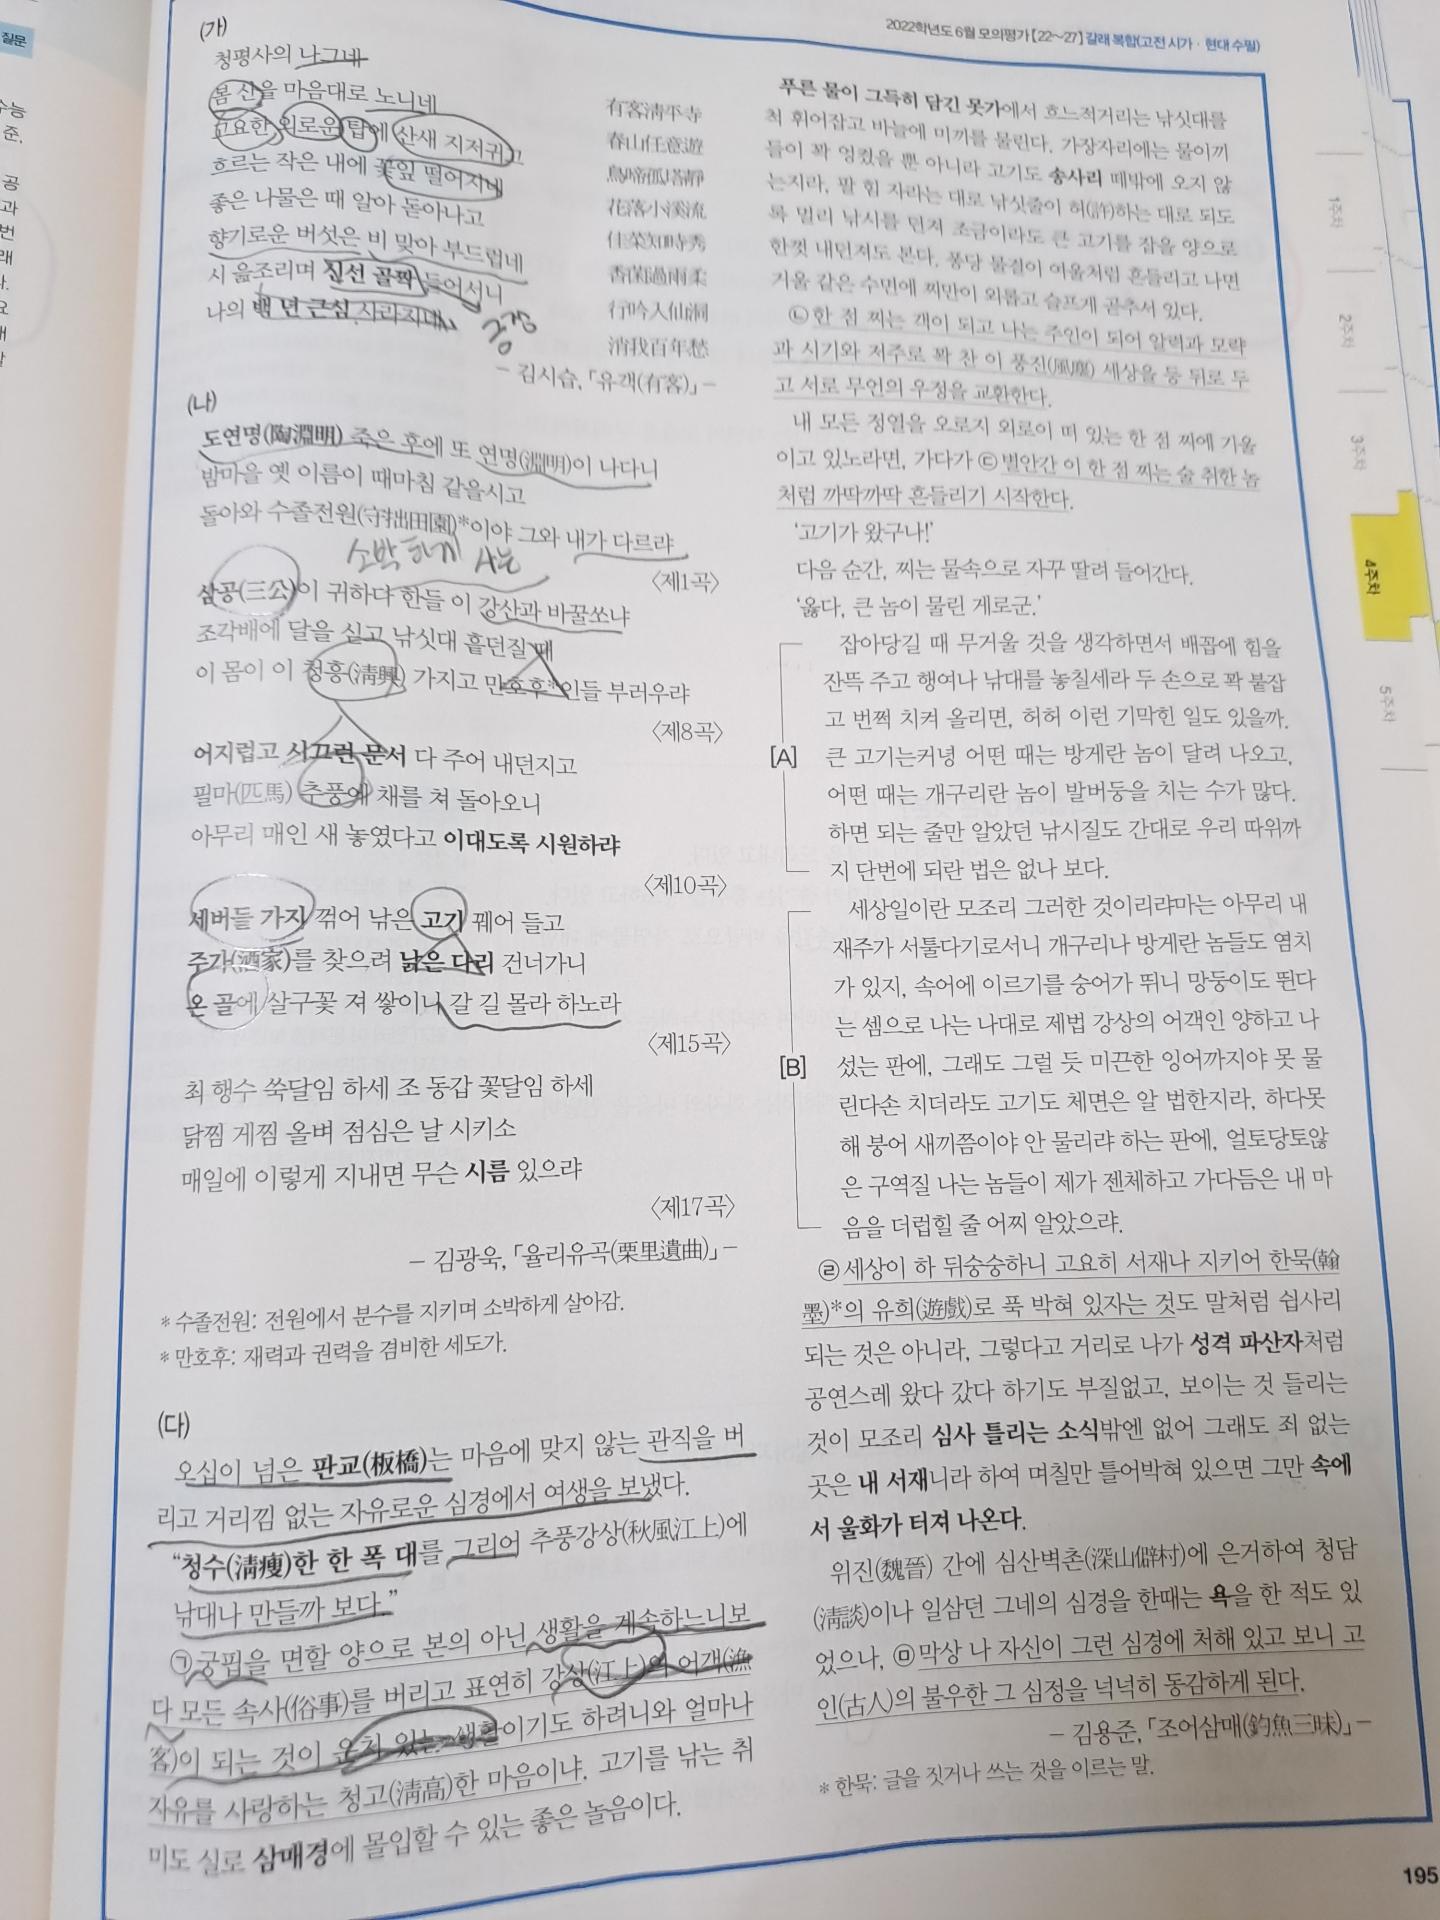 질문
2022학년도 6월 모의평가 【22~27】 갈래 복합(고전 시가 · 현대 수필)
(가)
청평사의 나그네
봄 산을 마음대로 노니네
고요한 외로운 탑에 산새 지저귀고
흐르는 작은 내에 꽃잎 떨어지네
좋은 나물은 때 알아 돋아나고
향기로운 버섯은 비 맞아 부드럽네
시 읊조리며 신선 골짝 들어서니
나의 백 년 근심 사라지네
긍정
有客淸平寺
春山任意遊
鳥啼孤塔靜
花落小溪流
佳菜知時秀
香菌過雨柔
行吟入仙洞
消我百年愁
- 김시습, 「유객(有客)」 -
(나)
도연명(陶淵明) 죽은 후에 또 연명(淵明)이 나다니
밤마을 옛 이름이 때마침 같을시고
돌아와 수졸전원(守拙田園)*이야 그와 내가 다르랴
소박하게 사는
〈제1곡〉
삼공(三公)이 귀하다 한들 이 강산과 바꿀쏘냐
조각배에 달을 싣고 낚싯대 흩던질 때
이 몸이 이 청흥(淸興) 가지고 만호후*인들 부러우랴
〈제8곡〉
어지럽고 시끄런 문서 다 주어 내던지고
필마(匹馬) 추풍에 채를 쳐 돌아오니
아무리 매인 새 놓였다고 이대도록 시원하랴
〈제10곡〉
세버들 가지 꺾어 낚은 고기 꿰어 들고
주가(酒家)를 찾으려 낡은 다리 건너가니
온 골에 살구꽃 져 쌓이니 갈 길 몰라 하노라
〈제15곡〉
최 행수 쑥달임 하세 조 동갑 꽃달임 하세
닭찜 게찜 올벼 점심은 날 시키소
매일에 이렇게 지내면 무슨 시름 있으랴
〈제17곡〉
- 김광욱, 「율리유곡(栗里遺曲)」 -
* 수졸전원: 전원에서 분수를 지키며 소박하게 살아감.
* 만호후: 재력과 권력을 겸비한 세도가.
(다)
오십이 넘은 판교(板橋)는 마음에 맞지 않는 관직을 버
리고 거리낌 없는 자유로운 심경에서 여생을 보냈다.
“청수(淸瘦)한 한 폭 대를 그리어 추풍강상(秋風江上)에
낚대나 만들까 보다.”
㉠궁핍을 면할 양으로 본의 아닌 생활을 계속하느니보
다 모든 속사(俗事)를 버리고 표연히 강상(江上)의 어객(漁
客)이 되는 것이 운치 있는 생활이기도 하려니와 얼마나
자유를 사랑하는 청고(淸高)한 마음이냐. 고기를 낚는 취
미도 실로 삼매경에 몰입할 수 있는 좋은 놀음이다.
푸른 물이 그득히 담긴 못가에서 흐느적거리는 낚싯대를
척 휘어잡고 바늘에 미끼를 물린다. 가장자리에는 물이끼
들이 꽉 엉켰을 뿐 아니라 고기도 송사리 떼밖에 오지 않
는지라, 팔 힘 자라는 대로 낚싯줄이 허(許)하는 대로 되도
록 멀리 낚시를 던져 조금이라도 큰 고기를 잡을 양으로
한껏 내던져도 본다. 퐁당 물결이 여울처럼 흔들리고 나면
거울 같은 수면에 찌만이 외롭고 슬프게 곧추서 있다.
㉡한 점 찌는 객이 되고 나는 주인이 되어 알력과 모략
과 시기와 저주로 꽉 찬 이 풍진(風塵) 세상을 등 뒤로 두
고 서로 무언의 우정을 교환한다.
내 모든 정열을 오로지 외로이 떠 있는 한 점 찌에 기울
이고 있노라면, 가다가 ㉢별안간 이 한 점 찌는 술 취한 놈
처럼 까딱까딱 흔들리기 시작한다.
‘고기가 왔구나!’
다음 순간, 찌는 물속으로 자꾸 딸려 들어간다.
‘옳다, 큰 놈이 물린 게로군.’
[A]
잡아당길 때 무거울 것을 생각하면서 배꼽에 힘을
잔뜩 주고 행여나 낚대를 놓칠세라 두 손으로 꽉 붙잡
고 번쩍 치켜 올리면, 허허 이런 기막힌 일도 있을까.
큰 고기는커녕 어떤 때는 방게란 놈이 달려 나오고,
어떤 때는 개구리란 놈이 발버둥을 치는 수가 많다.
하면 되는 줄만 알았던 낚시질도 간대로 우리 따위까
지 단번에 되란 법은 없나 보다.
[B]
세상일이란 모조리 그러한 것이리랴마는 아무리 내
재주가 서툴다기로서니 개구리나 방게란 놈들도 염치
가 있지, 속어에 이르기를 숭어가 뛰니 망둥이도 뛴다
는 셈으로 나는 나대로 제법 강상의 어객인 양하고 나
섰는 판에, 그래도 그럴 듯 미끈한 잉어까지야 못 물
린다손 치더라도 고기도 체면은 알 법한지라, 하다못
해 붕어 새끼쯤이야 안 물리랴 하는 판에, 얼토당토않
은 구역질 나는 놈들이 제가 젠체하고 가다듬은 내 마
음을 더럽힐 줄 어찌 알았으랴.
㉣세상이 하 뒤숭숭하니 고요히 서재나 지키어 한묵(翰
墨)*의 유희(遊戲)로 푹 박혀 있자는 것도 말처럼 쉽사리
되는 것은 아니라, 그렇다고 거리로 나가 성격 파산자처럼
공연스레 왔다 갔다 하기도 부질없고, 보이는 것 들리는
것이 모조리 심사 틀리는 소식밖엔 없어 그래도 죄 없는
곳은 내 서재니라 하여 며칠만 틀어박혀 있으면 그만 속에
서 울화가 터져 나온다.
위진(魏晉) 간에 심산벽촌(深山僻村)에 은거하여 청담
(淸談)이나 일삼던 그네의 심경을 한때는 욕을 한 적도 있
었으나, ㉤막상 나 자신이 그런 심경에 처해 있고 보니 고
인(古人)의 불우한 그 심정을 넉넉히 동감하게 된다.
- 김용준, 「조어삼매(釣魚三昧)」 -
* 한묵: 글을 짓거나 쓰는 것을 이르는 말.
1주차
2주차
3주차
4주차
5주차
195